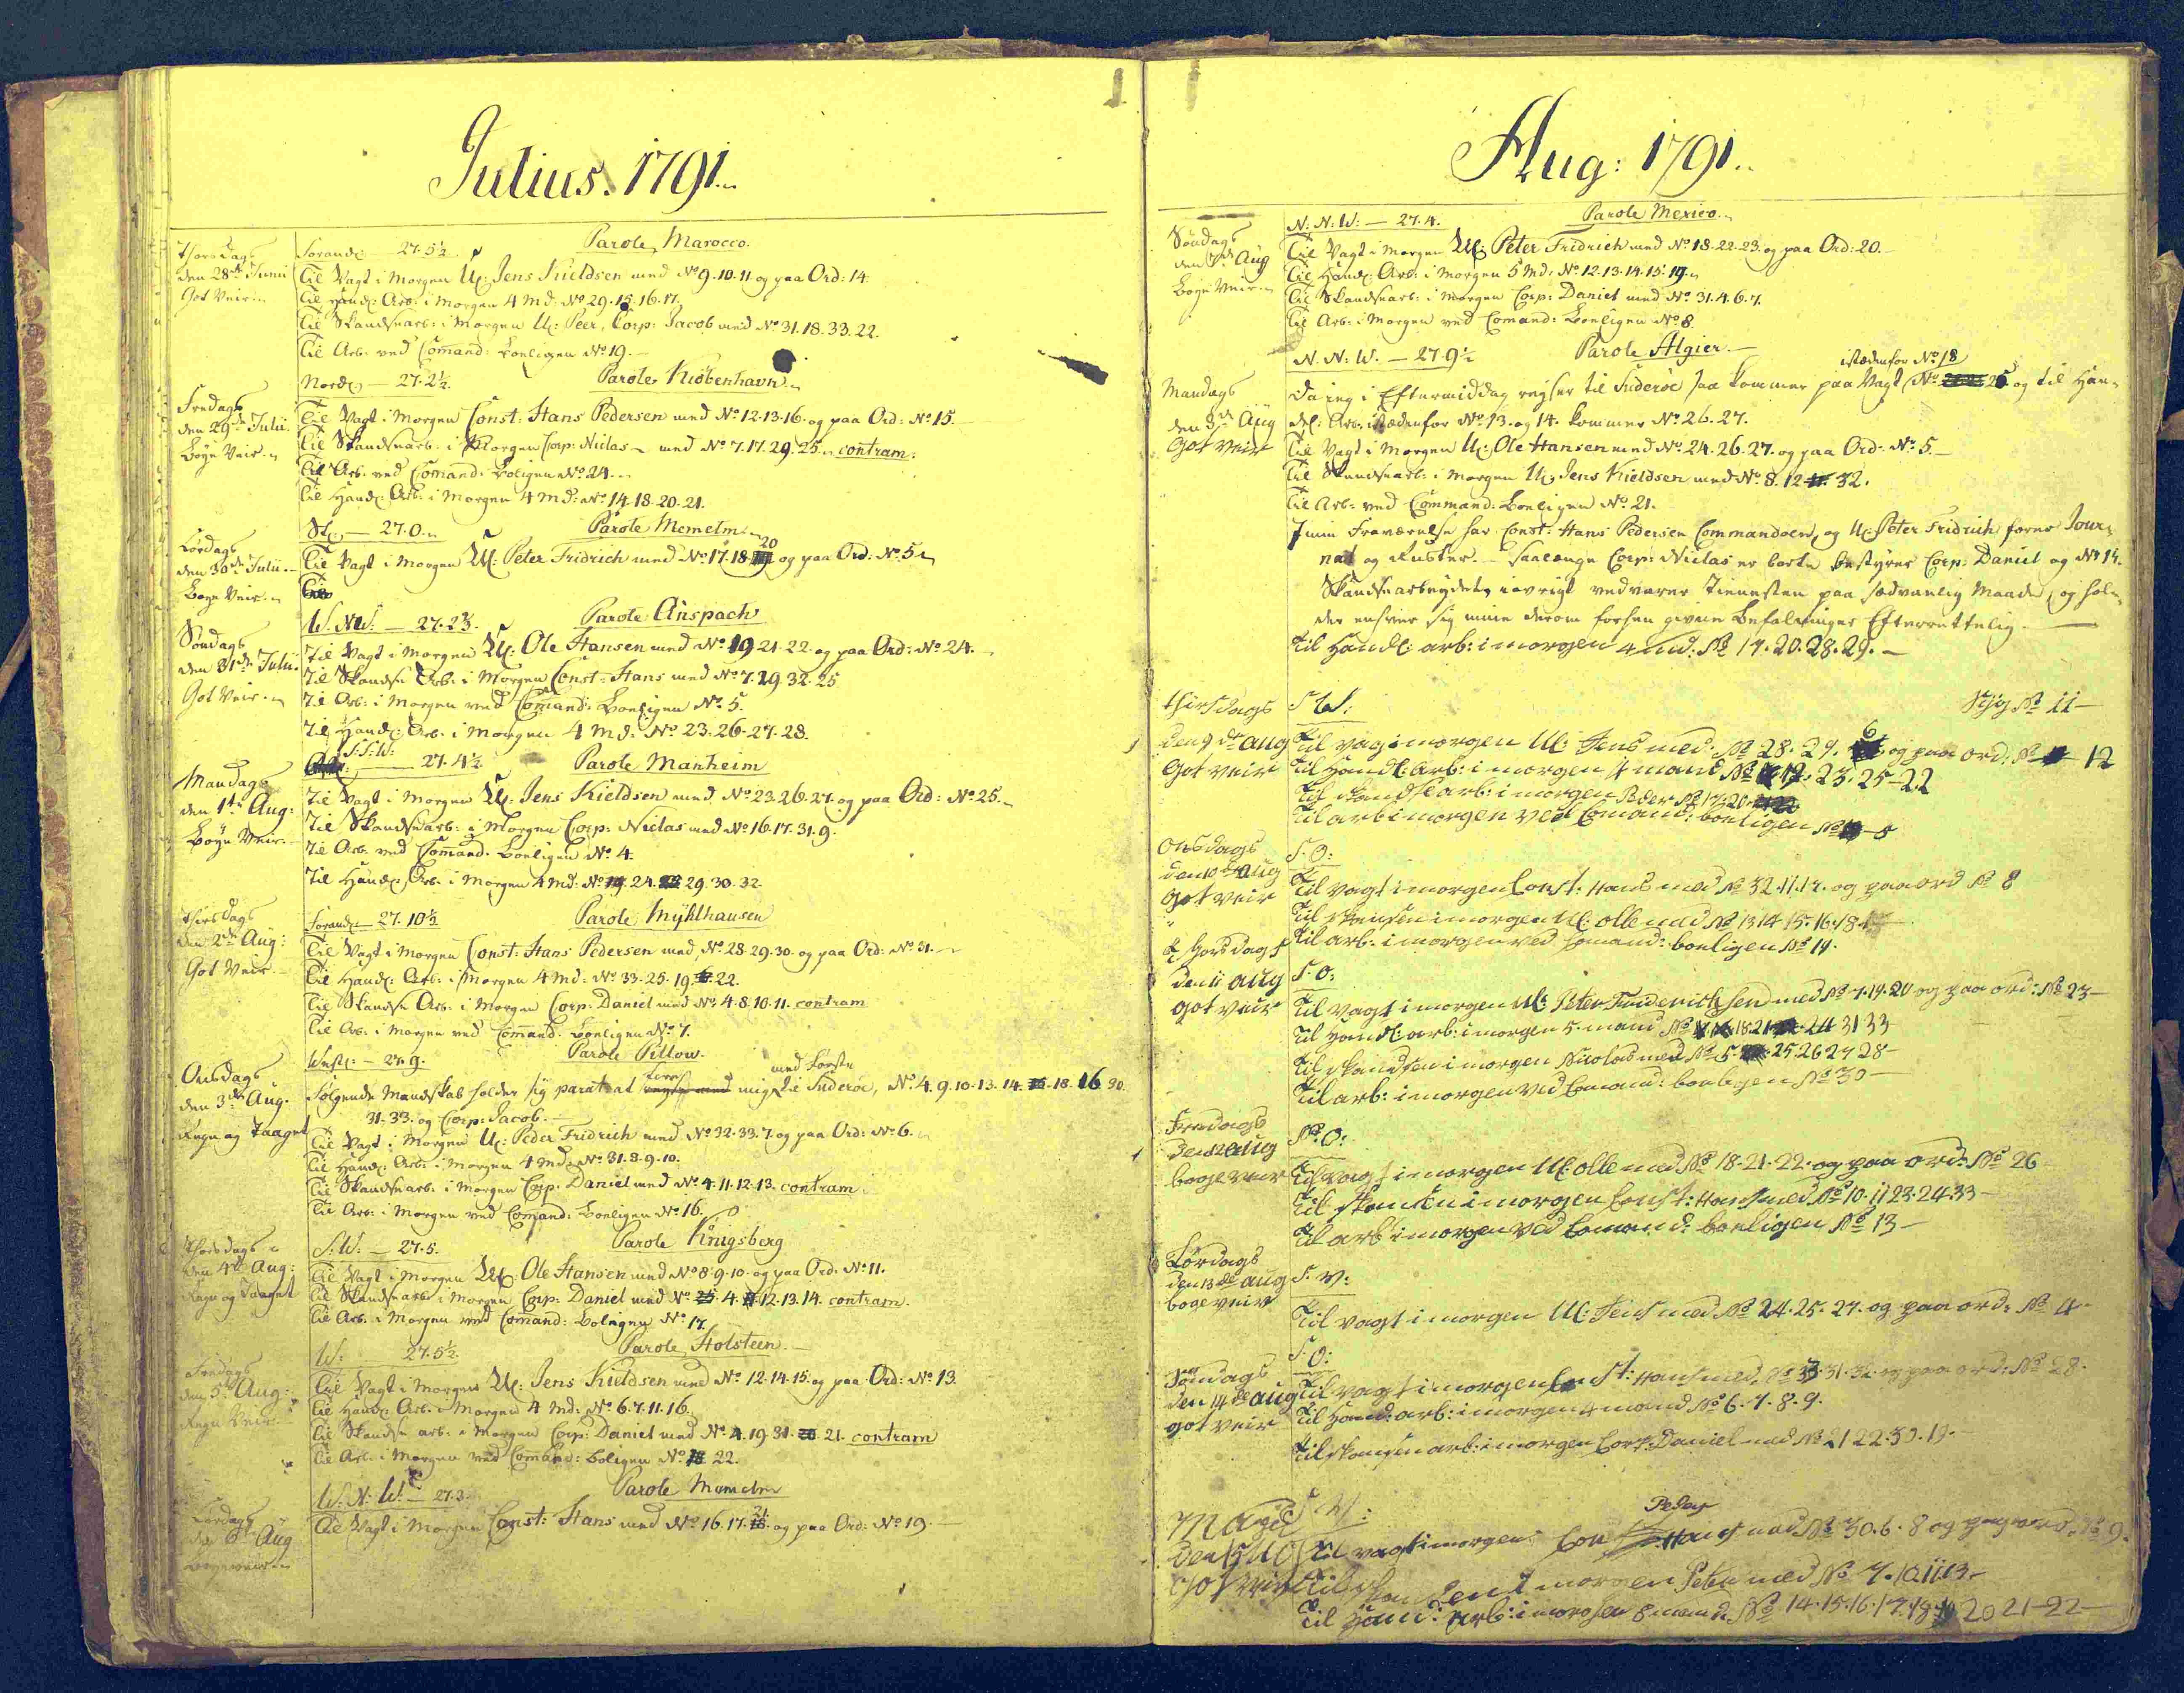 Julius. 1791.
Thorsdags
den 28de Junii
Got Veir
Forandl: 27.5½
Parole Marocco.
Til Vagt i Morgen UC: Jens Kieldsen med No 9.10.11 og paa Ord: 14.
Til Handl: Arb: i Morgen 4 Md: No 29.15.16.17.
Til Skandsearb: i Morgen UC: Peer, Corp: Jacob med No 31.18.33.22.
Til Arb: ved Comand: Boeligen No 19.
Fredags
den 29de Julii.
Bøye Veir
Nordl: 27.2½.
Parole Kiöbenhavn
Til Vagt i Morgen Const. Hans Pedersen med No 12.13.16. og paa Ord: No 15.
Til Skandsearb. i Morgen Corp: Niclas med No 7.17.29.25. contram.
Til Arb. ved Comand: Boligen No 24.
Til Handl: Arb: i Morgen 4 Md: No 14.18.20.21.
Lördags
den 30de Julii.
Bøye Veir
27.0.
Parole Memelm
Til Vagt i Morgen UC: Peter Fridrich med No 17.18. 20 og paa Ord: No. 5
Søndags
den 31de Julii.
Got Veir
W. NW. 27.2½.
Parole Anspach
Til Vagt i Morgen UC: Ole Hansen med No 19 21.22. og paa Ord: No 24.
Til Skandse Arb. i Morgen Const: Hans med No 7.29.32.25
Til Arb: i Morgen ved Comand: Boeligen No 5.
Til Handl: Arb. i Morgen 4 Md: No 23.26.27.28.
Mandags
den 1te Aug:
Bøye Veir
S:S:W: 27.4½
Parole Manheim
Til Vagt i Morgen UC: Jens Kieldsen med No 23.26.27. og paa Ord: No 25.
Til Skandsearb: i Morgen Corp: Niclas med No 16.17.31.9.
Til Arb. ved Comand. Boeligen No 4.
Til Handl: Arb. i Morgen 4 Md: No 24. 29.30.32.
Thirsdags
den 2de Aug:
Got Veir.
Forandl: 27.10½
Parole Mÿhlhausen
Til Vagt i Morgen Const: Hans Pedersen med No 28.29.30. og paa Ord: No 31.
Til Handl: Arb: i Morgen 4 Md: No 33.25.19. 22.
Til Skandse Arb. i Morgen Corp: Daniel med No 4.8.10.11. contram
Til Arb. i Morgen ved Comand: Boeligen No 7.
Onsdags
den 3de Aug.
Regn og Taaget
Westl: 27.9.
Parole Pillow.
med Første
Følgende Mandskab holder sig parat at mig til Suderøe, No 4.9.10.13.14. 18. 16 30
31.33. og Corp: Jacob.
Til Vagt i Morgen UC: Peder Fridrich med No 32.33.7. og paa Ord: No 6.
Til Handl: Arb: i Morgen 4 Md: No 31.8.9.10.
Til Skandsearb. i Morgen Corp. Daniel med No 4.11.12.13. contram
Til Arb: i Morgen ved Comand: Boeligen No 16.
Thorsdags
den 4de Aug:
Regn og Taaget
S:W: 27.5.
Parole Königsberg
Til Vagt i Morgen UC: Ole Hansen med No 8.9.10. og paa Ord. No 11.
Til Skandsearb i Morgen Corp: Daniel med No 4. 12.13.14. contram.
Til Arb. i Morgen ved Comand: Boligen No 17.
Fredags
den 5te Aug:
Regn Veir
W: 27.5½.
Parole Holsteen.
Til Vagt i Morgen UC: Jens Kieldsen med No 12.14.15. og paa Ord: No 13.
Til Handl: Arb. i Morgen 4 Md: No 6.7.11.16.
Til Skandse arb: i Morgen Corp: Daniel med No 4.19.31. 21. contram
Til Arb. i Morgen ved Comand: Boligen No 22.
Lördags
den 6te Aug
W:N:W: 27.3.
Parole
Til Vagt i Morgen Const: Hans med No 16.17. 21 og paa Ord: No 19.
Aug: 1791.
Søndags
den 7de Aug
Bøye Veir
N:N:W: 27.4.
Parole Mexico.
Til Vagt i Morgen UC: Peter Fridrich med No 18.22.23. og paa Ord: 20.
Til Handl: Arb: i Morgen 5 Md: No 12.13.14.15.19.
Til Skandsearb: i Morgen Corp: Daniel med No 31.4.6.7.
Til Arb: i Morgen ved Comand: Boeligen No 8.
Mandags
den Aug
Got Veir
N.N:W. 27.9½
Parole Algier
istædenfor No 18
Da jeg i Eftermiddag reyser til Suderøe saa kommer paa Vagt No 25 og til Han-
dl: Arb: istædenfor No 13. og 14. kommer No 26.27.
Til Vagt i Morgen UC: Ole Hansen med No 24.26.27. og paa Ord: No 5.
Til Skandsearb: i Morgen UC: Jens Kieldsen med No 8.12. 32.
Til Arb: ved Command: Boeligen No 21.
I min Fraværelse har Const: Hans Pedersen Commandoen, og UC: Peter Fridrich fører Jour-
nal og Rulter. saalænge Corp: Niclas er borte bestyrer Corp: Daniel og No 14.
Skandsearbeydet, iøvrigt vedvarer Tienesten paa sædvanlig Maade, og hol-
der enhver sig mine derom forhen givne Befalninger Efterrettelig.
Til Handl: arb: i morgen 4 md: No 17.20.28.29.
Thirsdags
den 9de Aug
Got Veir
S W:
Syg No 11
Til vagt i morgen UC: Jens med No 28.29. 6 og paa ord: No 12
Til Handl: Arb: i morgen 4 mand No 12.23.25-22
Til skandse arb: i morgen Peder No 17.20
Til arb i morgen ved Comand: boeligen No 5
Onsdags
den 10de Aug
Got Veir
S.O:
Til vagt i morgen Const: Hans med No 32.17.14. og paa ord No 8
Til skansen i morgen UC: olle med No 13 14 15.16.18
Til arb: i morgen ved Comand: boeligen No 19.
Thorsdags
den 11 aug
got veir
S.O:
Til vagt i morgen UC: Peter med No 7.19.20 og paa ord: No 23
Til Handl: arb: i morgen 5 mand No 18.21. 24 31 33
Til skandsen i morgen Nicolas med No 5. 25.26 27 28
Til arb: i morgen ved Comand: boeligen No 30
Fredags
den 12 aug
boge veir
S.O:
Til vagt i morgen UC: olle med No 18.21.22. og paa ord: No 26
Til skansen i morgen Const: Hans med No 10.11 23.24 33
Til arb i morgen ved Comand: boeligen No 13
Lørdags
den 13de aug
boge veir
S.V:
Til vagt i morgen UC: Jens med No 24.25.27. og paa ord: No 4.
Søndags
den 14de aug
got veir
S.O:
Til vagt i morgen Const: Hans med No 33.31.32. og paa ord: No 28.
Til Hand: arb: i morgen 4 mand No 6.7.8.9.
Til skansen arb: i morgen Corp: Daniel med No 21 22.30.19.
Mand
den 15
got veir
S V:
Peder
Til vagt i morgen Hans med No 30.6.8 og paa ord: No 9.
Til i morgen Peter med No 7.10 11 13
Til Hand: arb: i morgen 8 mand: No 14.15.16.17.18. 20 21-22